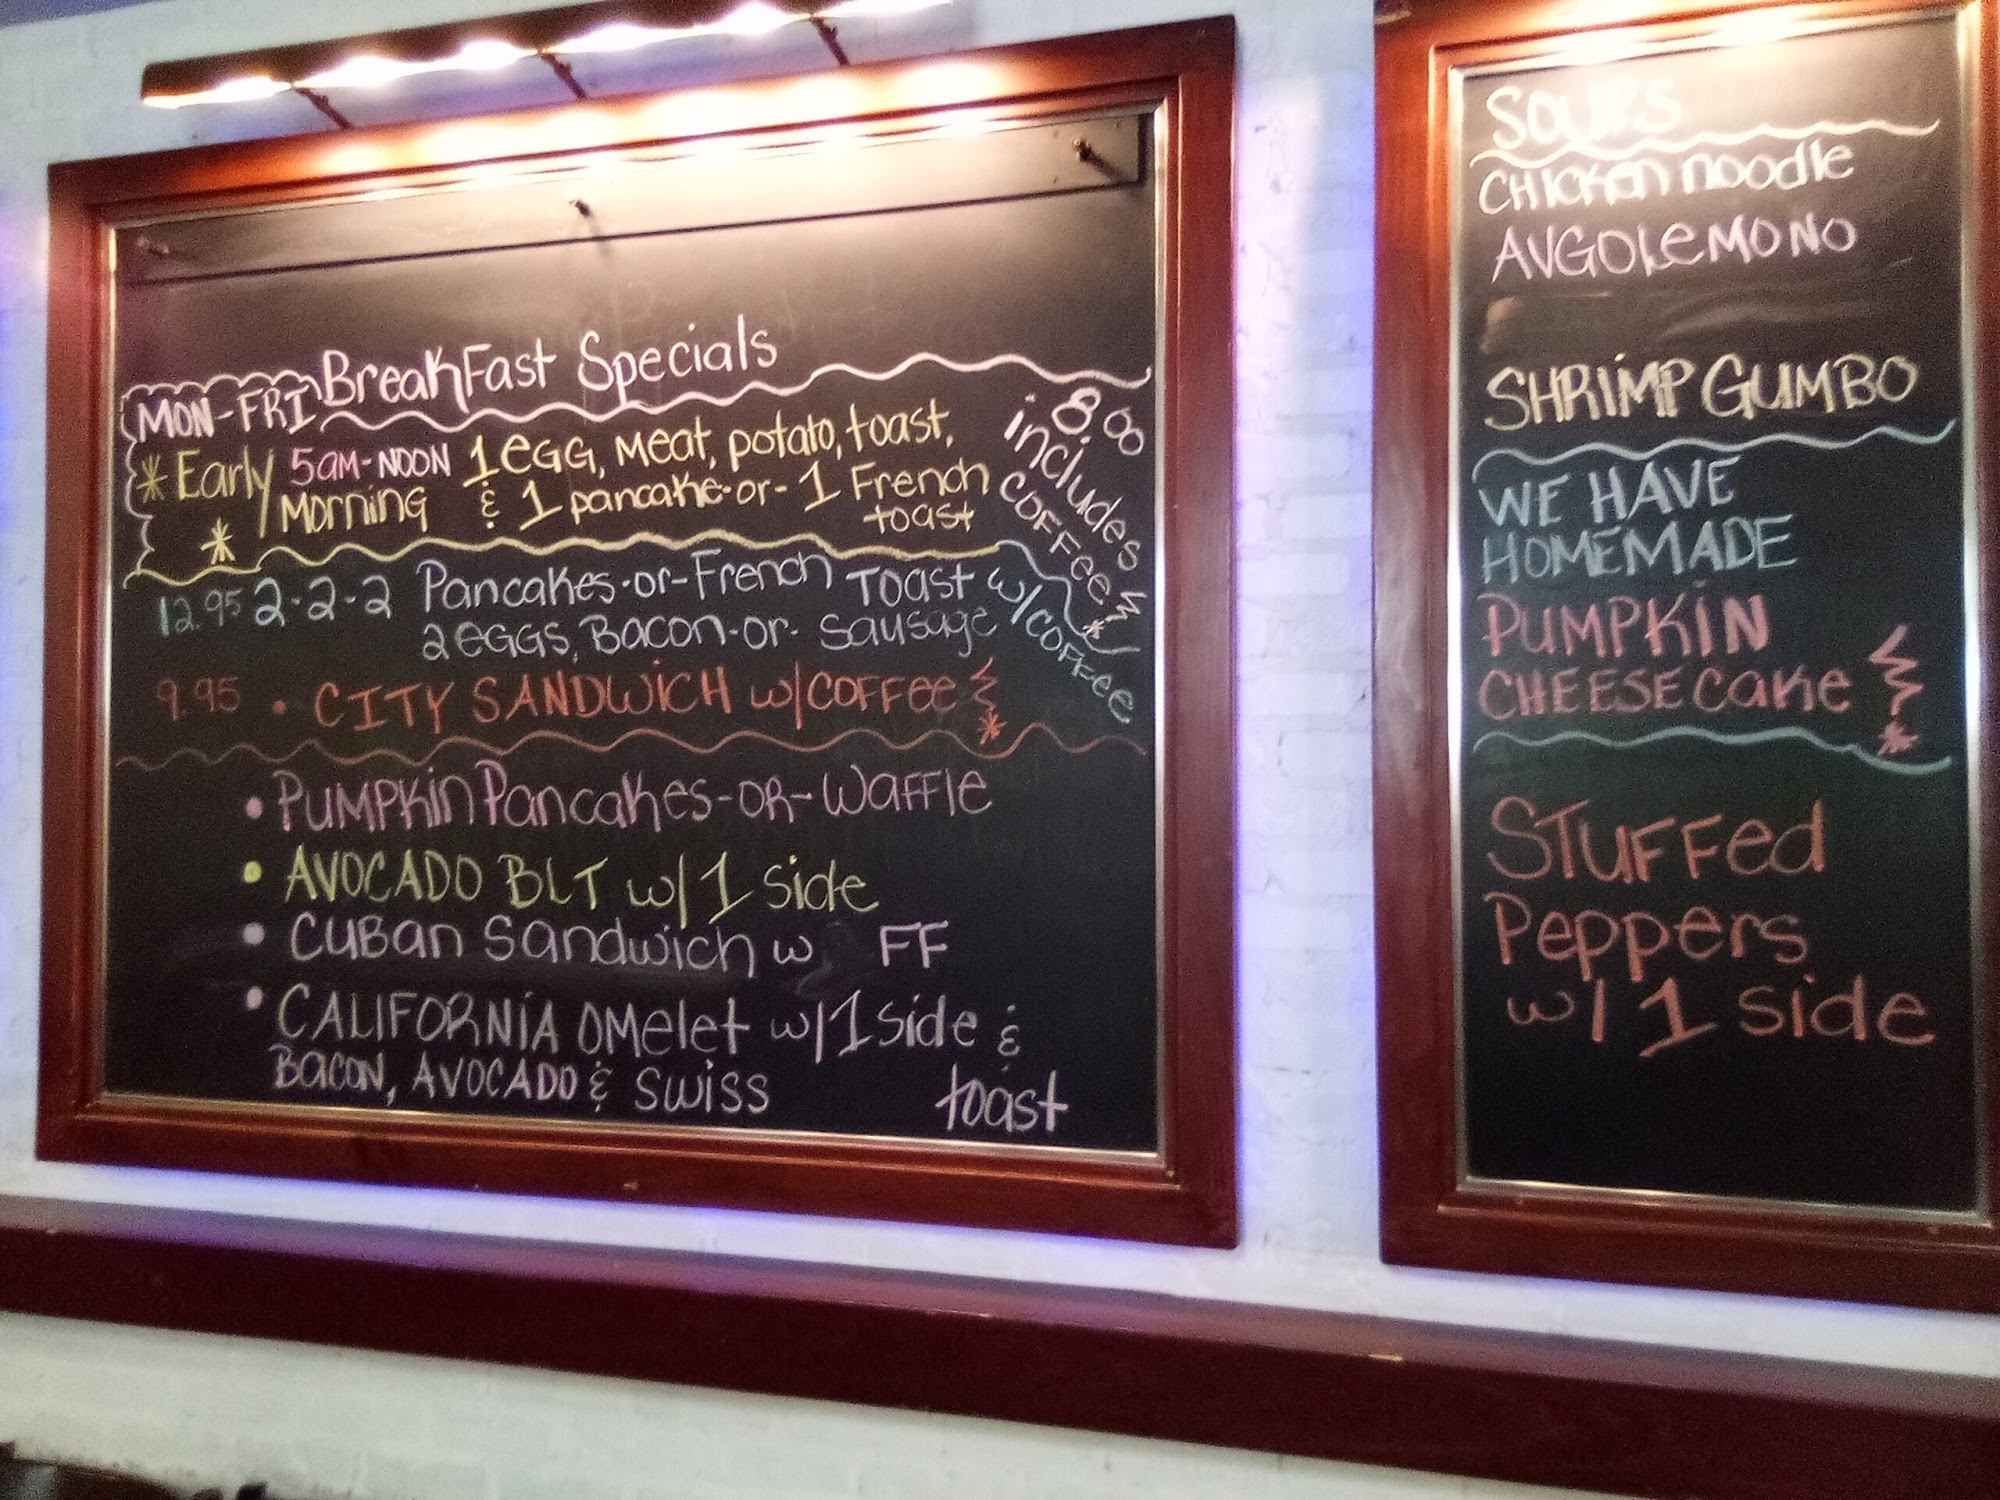 BreakFast Specials
MON-FRI
*Early 5am-NOON 1 eGG, Meat, potato, toast,
Morning & 1 pancake-or-1 French
* toast
8.00
includes
COFFee *
12.95 2-2-2 Pancakes-or-French TOAST w/COFFee
2 eGGS, Bacon-or-Sausage
9.95 • CITY SANDWiCH w/COFFee *
• PUMPKin Pancakes-OR-WaFFle
• AVOCADO BLT w/1 side
• CUBan Sandwich w FF
• CALIFORNiA OMelet w/1 side &
BACON, AVOCADO & SWiSS toast
SOUPS
CHicken noodle
AVGOLeMONO
SHRiMP GUMBO
WE HAVE
HOMEMADE
PUMPKiN
CHEESE Cake *
STUFFed
Peppers
w/1 side